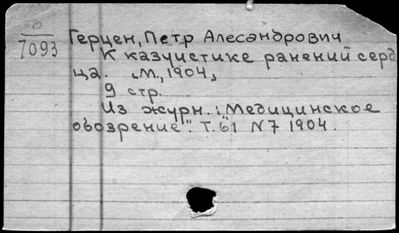 00
7093
Герцен, Петр Алесандрович
К казуистике ранений серд
ца. М., 1904,
9 стр.
Из журн.: "Медицинское
обозрение". Т. 61 N7 1904.